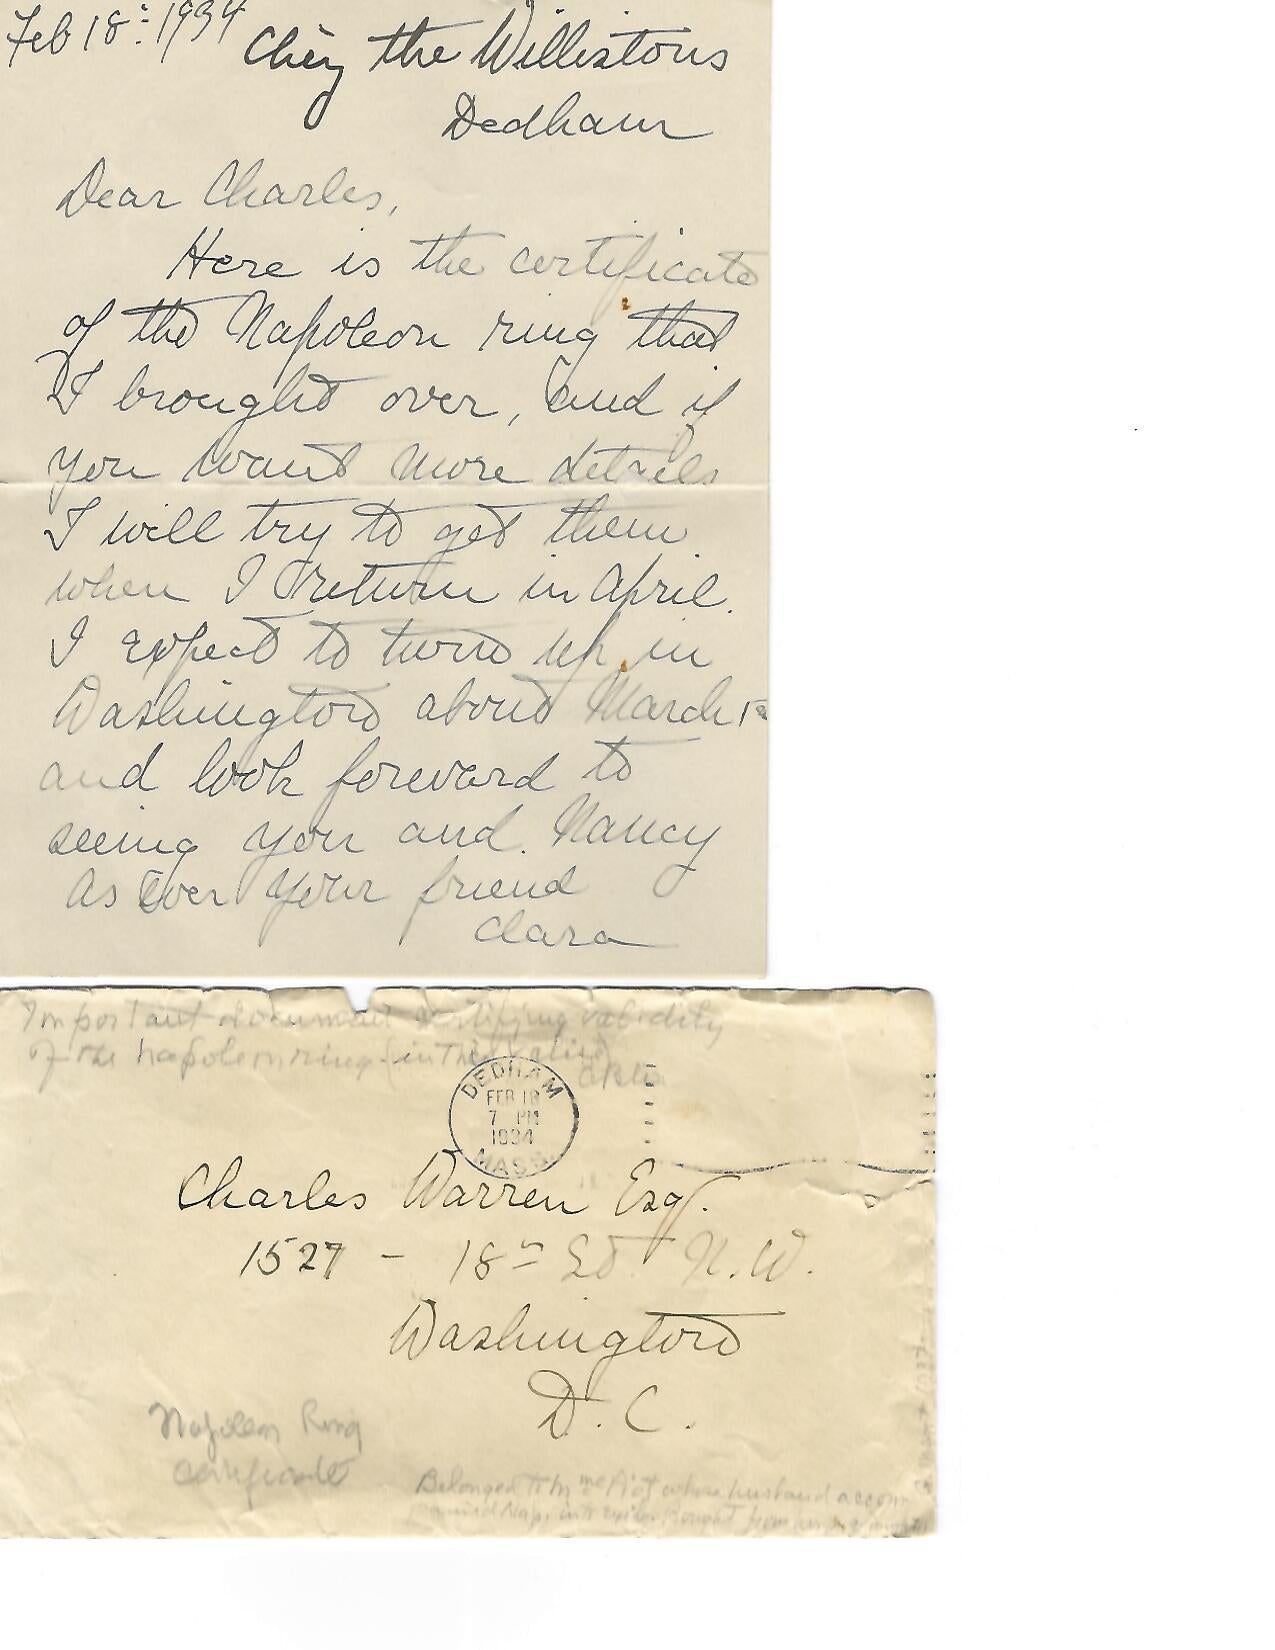 Feb 18th 1934
Chez the Willistons
Dedham
Dear Charles,
Here is the certificate
of the Napoleon ring that
I brought over, and if
you want more details
I will try to get them
when I return in April.
I expect to turn up in
Washington about March 1st
and look forward to
seeing you and Nancy
As Ever Your friend
Clara
Important document certifying validity
of the Napoleon ring (in this
DEDHAM
FEB 18
7 PM
1934
MASS.
Charles Warren Esq.
1527 - 18th St. N.W.
Washington
D. C.
Napoleon Ring
Certificate
Belonged to Mme whose husband accom
panied Nap. into exile. Bought from